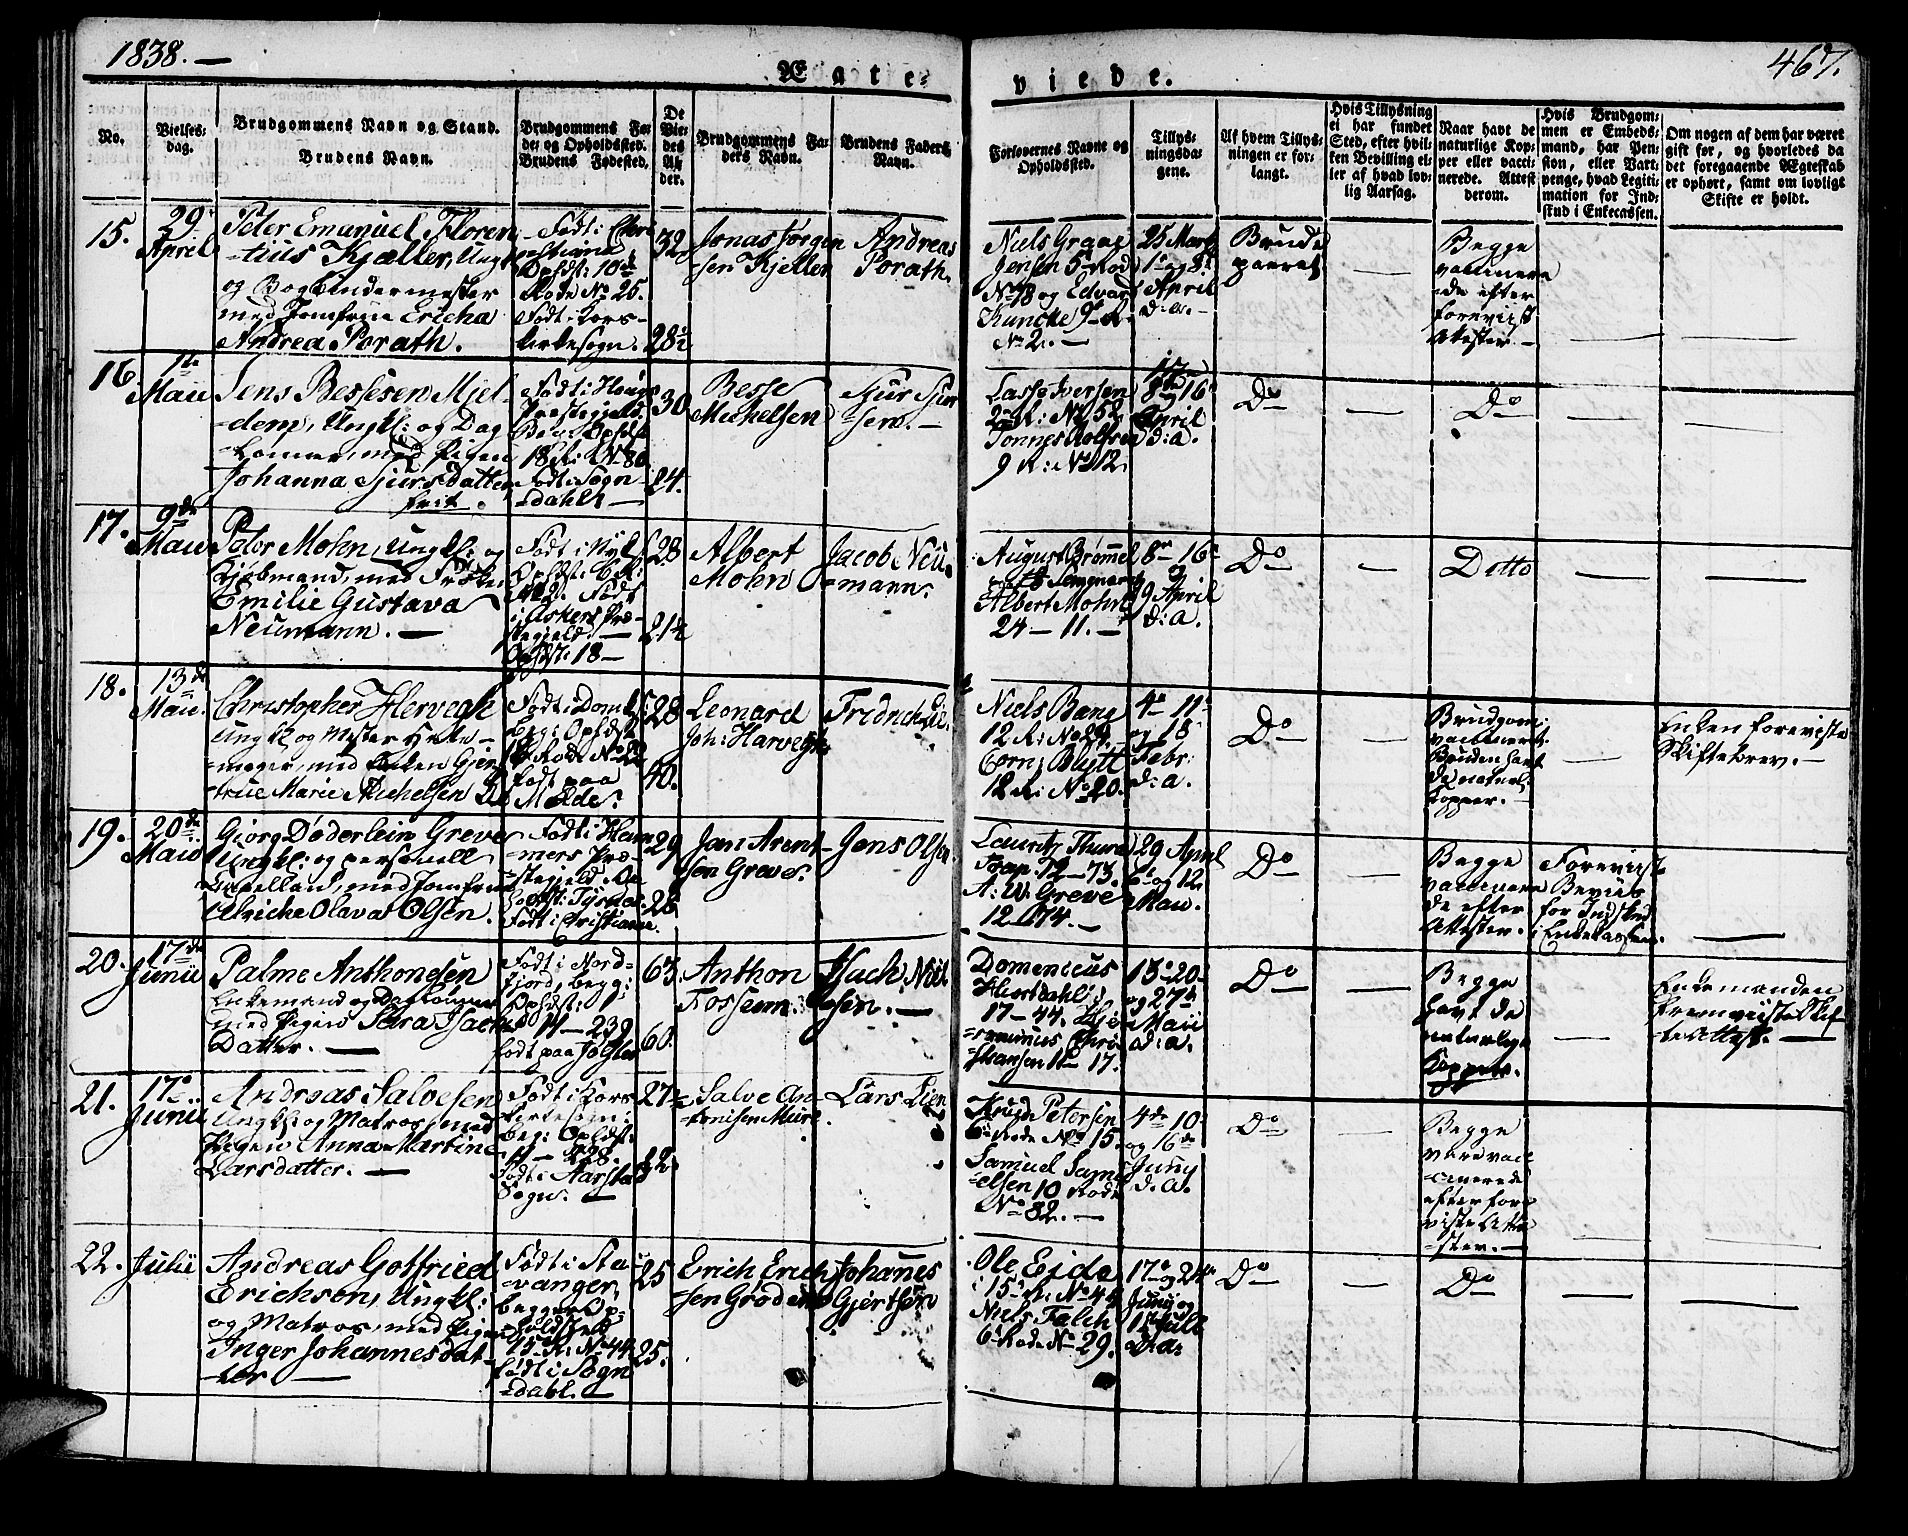 1838. —
467.
Ægte-
viede.
No.
Vielses-
dag.
Brudgommens Navn og Stand.
Brudens Navn.
Brudgommens Fø-
de- og Opholdssted.
Brudens Fødested.
De
Vie-
des
Al-
der.
Brudgommens Fa-
ders Navn.
Brudens Faders
Navn.
Forlovernes Navne og
Opholdssted.
Tillys-
ningsda-
gene.
Af hvem Tillys-
ningen er for-
langt.
Hvis Tillysning
ei har fundet
Sted, efter hvil-
ken Bevilling el-
ler af hvad lov-
lig Aarsag.
Naar havt de
naturlige Kop-
per eller vacci-
nerede. Attest
derom.
Hvis Brudgom-
men er Embeds-
mand, har Pen-
sion, eller Vart-
penge, hvad Legiti-
mation for Ind-
skud i Enkecassen.
Om nogen af dem har været
gift før, og hvorledes da
det foregaaende Ægteskab
er ophørt, samt om lovligt
Skifte er holdt.
15.
29
April
Peter Emanuel Floren
-tius Kjæller, Ungk
og Bogbindermester
med Jomfrue Ericha
Andrea Porath.
Født i Chri
-stiania
Opholdst: 10de
Rode No 25.
Født i Kors-
kirkesogn.
32
28½
Jonas Jørgen
sen Kjeller
Andreas
Porath.
Niels Graae
Jensen 5 Rode
No 78 og Edvard
Kuncke 9de R.
No 2. —
25 Marts
1e og 8de
April
d. a. -
Brude
parret
—
Begge
vaccinere
-de efter
foreviist
Attester. —
—
—
16.
1te
Maii
Jens Bessesen Miel-
-dem, Ungk: og Dag
-lønner, med Pigen
Johanna Sjursdatter
frit.
Født i Houg
Præstegjeld.
Beg: Opholdst
18 R: No 86
Født i Sogn-
-dahl. —
30
24.
Besse
Mickelsen
Sjur Sjur
-sen. —
Lasse Iversen
2de R: No 52
Tønnes Rolfsen
9 R: No 12.
8de og 16
April
d: a.
Do
—
Do
—
—
17.
9de
Maii
Peter Mohn, Ungk: og
Kjøbmand, med Frøken
Emilie Gustava
Neumann. —
Opholdst: 6 R:
No 2. Født
i Askers Præ-
stegjeld. —
Opholdst: 18 —
28
21½
Albert
Mohn
Jacob Neu-
-mann.
August Brømmel
Albert Mohn
24 — 11. —
8de 16
og
29 April
d: a.
Do
—
Ditto
—
—
18.
13de
Maii.
Christopher Hervegh
Ungk og Mester
-mager, med Enken Gjer
-true Marie Michelsen
Født i Domk:
beg: Opholdst
Rode No 22
født paa
Molde.
28
40.
Leonard
Joh: Harvegh
Fridrich
Niels Bang
12 R: No 29.
Corn: Blytt
12 R: No 20.
4de 11
og 18
Febr:
d: a.
Do
—
Brudgom:
vaccineret.
Bruden havt
de naturl:
Kopper. —
—
Enken foreviste
Skiftebrev. —
19.
20de
Maii
Gjorg Døderlein Greve
Ungk: og personell
Capellan, med Jomfrue
Ulricke Olava Olsen.
Født i Ham
-mers Præ-
-stegjeld
Født i Christiania.
29
28
Jan Arent-
sen Greve.
Jens Olsen
Lauritz Thura
Trap. 12 — 73.
A: W: Greve
12 — 74. —
29 April
6te og 12
Maii.
Do
—
Begge
vaccinere
de efter
Attester. —
Foreviist
Beviis
for Indskud
i Enkekassen.
—
20.
17de
Junii
Palme Anthonesen
Enkemand og Dagløn̄er
med Pigen Sara Isachs
Datter. —
Født i Nord-
fjord, begg:
Opholdst:
14 — 239
født paa Jølster
63.
60.
Anthon
Fossem
Isach Niel
-sen. —
Domenicus
Hiortdahl
17 — 44. Hie
-ronimus Chri
-stiansen 11 — 17.
13de 20
og 27de
Maii
d: a.
Do
—
Begge
havt de
naturlige
Kopper.
—
Enkemanden
fremviiste Skif
-te Attest. —
21.
17de
Junii
Andreas Salvesen
Ungk: og Matros, med
Pigen Anna Martine
Larsdatter. —
Født i Kors
kirkesogn:
beg: Opholdst:
11 — 228.
Født i Aarstad
Sogn. —
27½
22.
Salve An-
-tonisen Meire.
Lars Lien
Knud Petersen
Rode No 15.
Samuel Samu
-elsen 10 Rode
No 82. —
4de 10
og 16de
Juny
d. a.
Do
—
Begge
være vac
-cinerede
efter fore
viste Atte
-ster. —
—
—
22.
Julii
Andreas Gotfried
Erichsen, Ungk:
og Matros, med Pigen
Inger Johannesdat-
ter —
Født i Sta-
vanger,
begges Op-
holdssted
15 R: No 44
født i Sogn
-dahl. —
25
25.
Erich Erich
sen Grodem
Johanes
Gjertsen
Ole Eide
i 15de R: No 44
Niels Falch
6te Rode No 29.
17de og 24de
Juny og
1ste Juli
D: a:
Do
—
Do
—
—